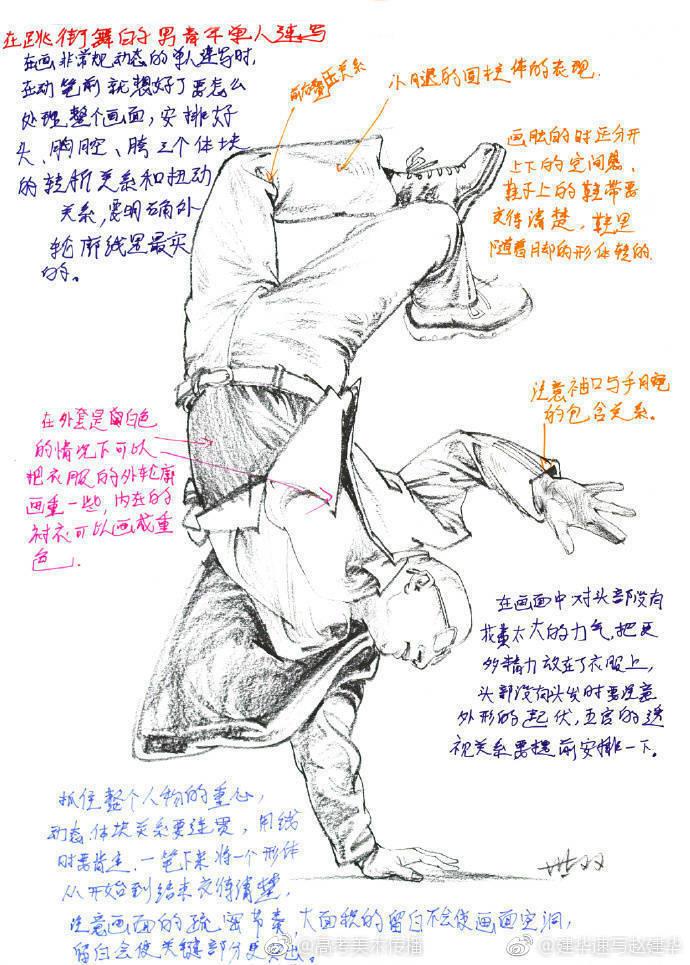 在跳街舞的男青年单人速写
在画非常规动态的单人速写时,
在动笔前就想好了要怎么
处理整个画面,安排好
头、胸腔、胯三个体块
的转折关系和扭动
关系,要明确外
轮廓线是最实
的。
前后叠压关系
小腿的圆柱体的表现.
画脚的时还分开
上下的空间感、
鞋子上的鞋带要
交待清楚,鞋是
随着脚的形体转的.
注意袖口与手腕
的包含关系.
在外套是留白色
的情况下可以
把衣服的外轮廓
画重一些,内在的
衬衣可以画成重
色.
在画面中对头部没有
花费太大的力气,把更
多精力放在了衣服上,
头部没有头发时要注意
外形的起伏,五官的透
视关系要提前安排一下。
抓住整个人物的重心,
动态.体块关系要连贯,用线
时要肯定.一笔下来将一个形体
从开始到结束交待清楚,
注意画面的疏密节奏,大面积的留白不会使画面空洞,
留白会使关键部分更突出。
@高考美术传播
@建华速写赵建华